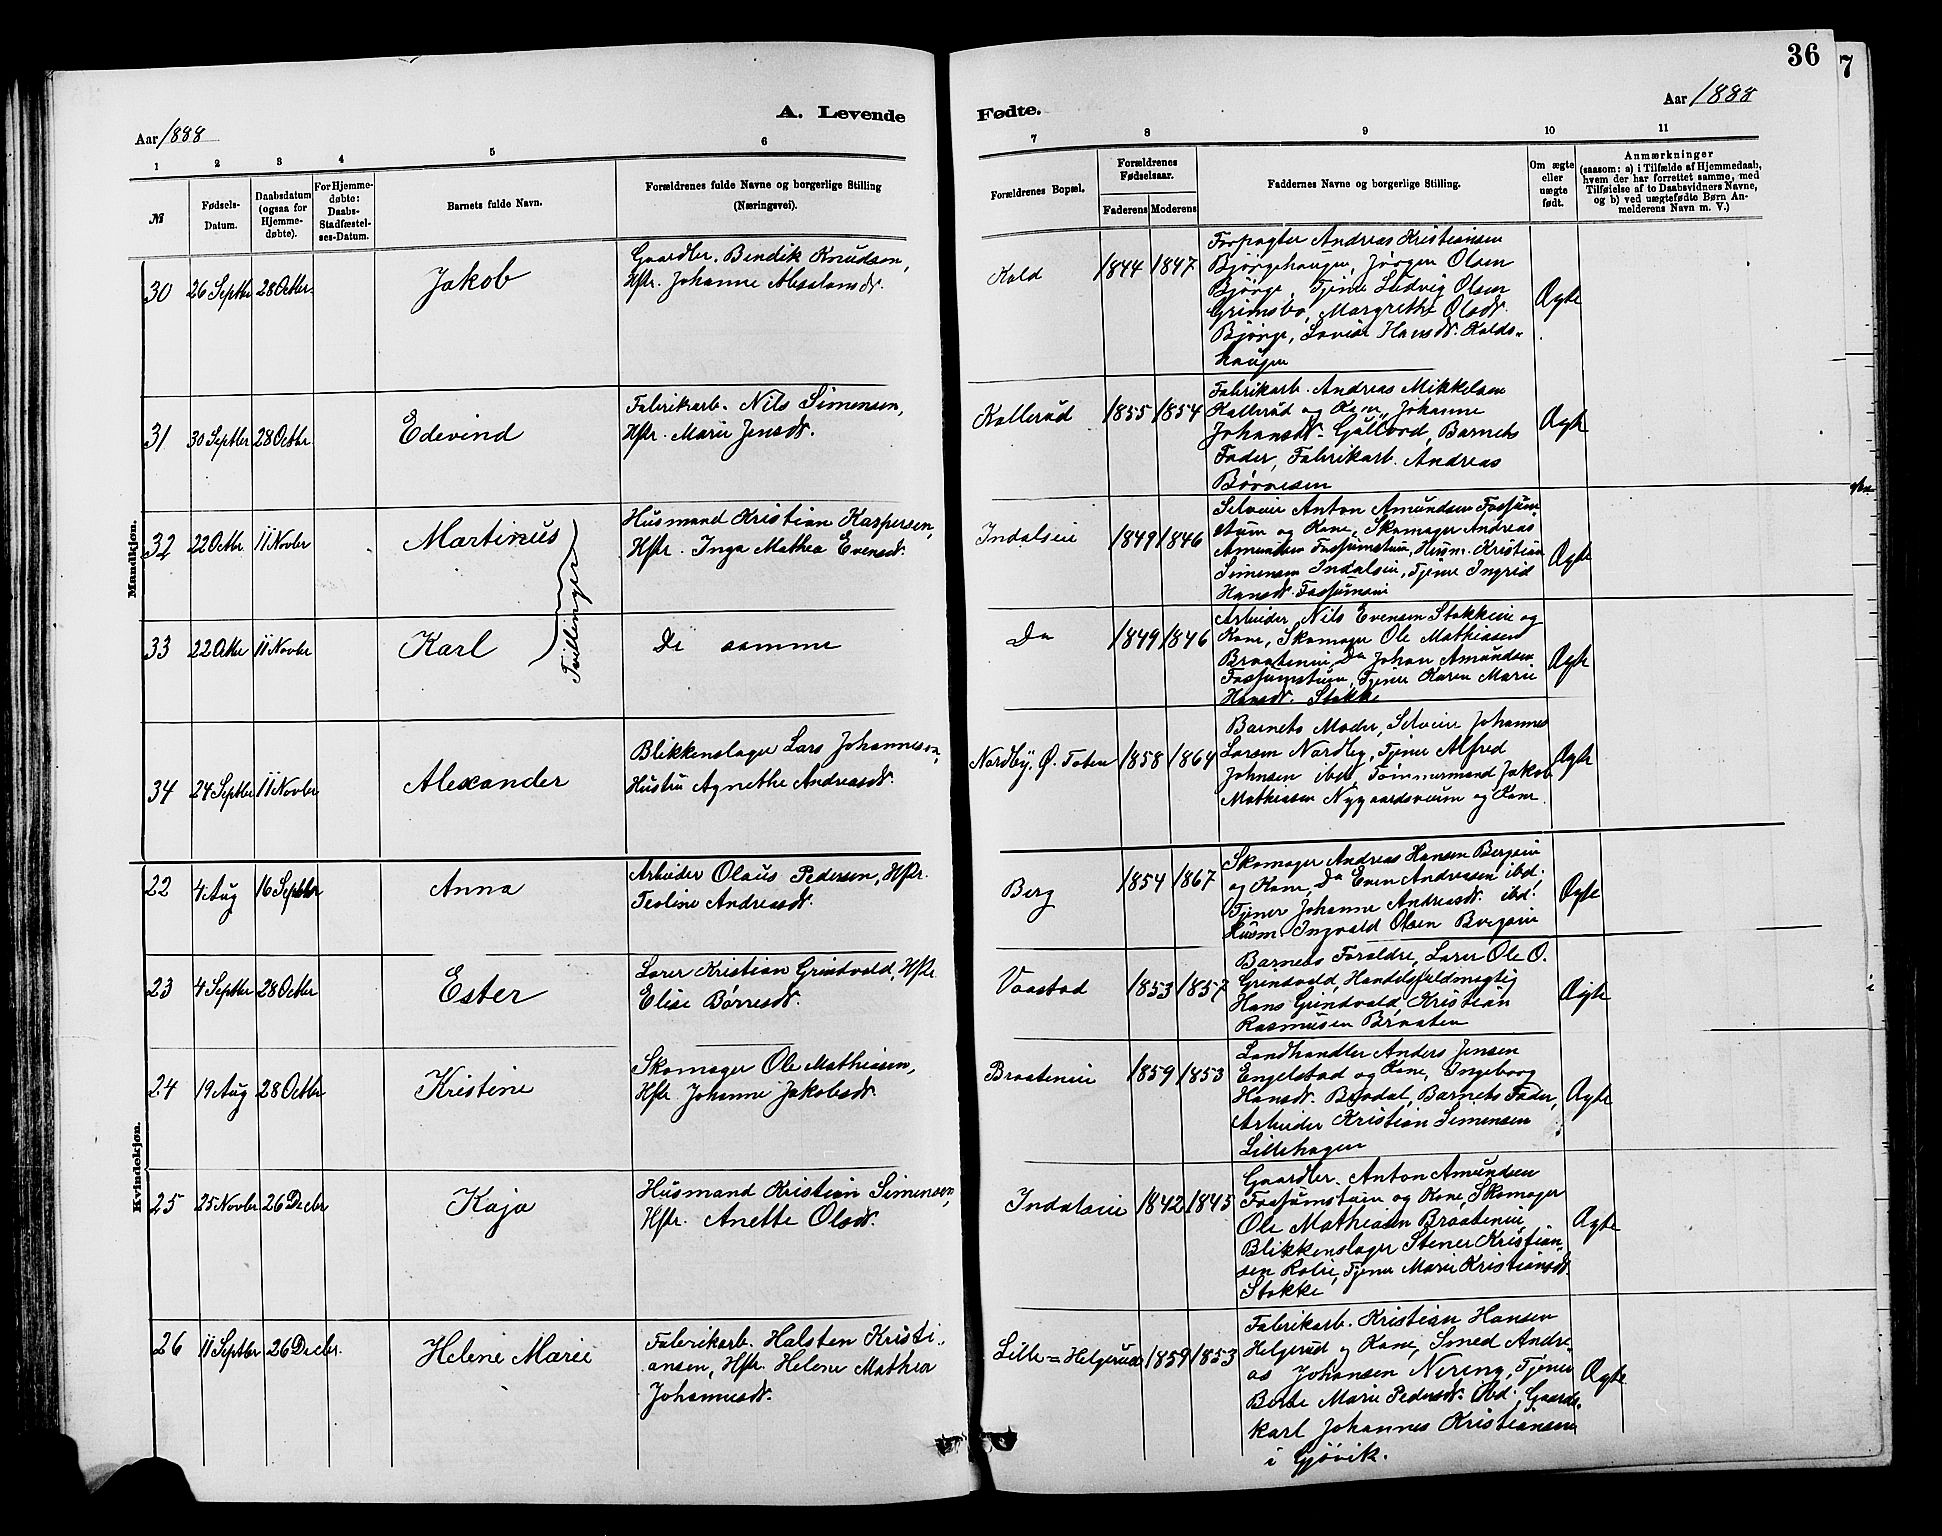 36
7
A. Levende
Fødte.
Aar 1888
Aar 1888
1 2 3 4 5 6
7 8 9 10 11
№
Fødsels-
Datum.
Daabsdatum
(ogsaa for
Hjemme-
døbte).
For Hjemme-
døbte:
Daabs-
Stadfæstel-
ses-Datum.
Barnets fulde Navn.
Forældrenes fulde Navne og borgerlige Stilling
(Næringsvei).
Forældrenes Bopæl.
Forældrenes
Fødselsaar.
Faderens Moderens
Faddernes Navne og borgerlige Stilling.
Om ægte
eller
uægte
født.
Anmærkninger
(saasom: a) i Tilfælde af Hjemmedaab,
hvem der har forrettet samme, med
Tilføielse af to Daabsvidners Navne,
og b) ved uægtefødte Børn An-
melderens Navn m. V.)
Mandkjøn.
30 26 Septbr 28 Octbr. Jakob
Gaardbr. Bendik Knudsen,
Hstr. Johanne Absalonsdt.
Kold 1844 1847
Forpagter Andreas Kristiansen
Bjørgehaugen, Jørgen Olsen
Bjørge, Tjener Ludvig Olsen
Grimsbo, Margrethe Olsdt.
Bjørge, Lovise Hansdt. Kolds-
haugen
Ægte
31 30 Septbr 28 Octbr Edevind
Fabrikarb. Nils Simensen,
Hstr. Marie Jensdt.
Kallerud 1855 1854
Fabrikarb. Andreas Mikkelsen
Kallerud og Kone, Johanne
Johansdt. Gullord, Barnets
Fader, Fabrikarb. Andreas
Børresen
Ægte
32 22 Octbr 11 Novbr Martinus
Husmand Kristian Kaspersen,
Hstr. Inga Mathea Evensdt.
Indalseie 1849 1846
Selveier Anton Amundsen Fossum-
stuen og Kone, Skomager Andreas
Amundsen Fossumstuen, Husm. Kristian
Simensen Indalseie, Tjener Ingrid
Hansdt. Fossumeie
Ægte
Tvillinger
33 22 Octbr 11 Novbr Karl
De samme
Do 1849 1846
Arbeider Nils Evensen Stokkeeie og
Kone, Skomager Ole Mathiasen
Braateneie, Do Johan Amundsen
Fossumstuen, Tjener Karen Marie
Hansdt. Stokke
Ægte
34 24 Septbr 11 Novbr Alexander
Blikkenslager Lars Johannesen,
Hustru Agnethe Andreasdt.
Nordby, Ø. Toten 1858 1864
Barnets Moder, Selveier Johannes
Larsen Nordby, Tjener Alfred
Johnsen ibd, Tømmermand Jakob
Mathiasen Nygaardsveien og Kone.
Ægte
Kvindekjøn.
22 4 Aug 16 Septbr Anna
Arbeider Olaus Pedersen, Hstr.
Teoline Andreasdt.
Berg 1854 1867
Skomager Andreas Hansen Bergeie
og Kone, Do Even Andreassen ibd,
Tjener Johanne Andreasdt. ibd.
Husm. Ingvald Olsen Bergeie
Ægte
23 4 Septbr 28 Octbr Ester
Lærer Kristian Grindvold, Hstr.
Elise Børresdt.
Vaastad 1853 1857
Barnets Forældre, Lærer Ole O.
Grindvold, Handelsfuldmægtig
Hans Grindvold, Kristian
Rasmusen Braaten
Ægte
24 19 Aug 28 Octbr Kristine
Skomager Ole Mathiasen,
Hstr. Johanne Jakobsdt.
Braateneie 1859 1853
Landhandler Anders Jensen
Engelstad og Kone, Ingeborg
Hansdt. Bredal, Barnets Fader,
Arbeider Kristian Simensen
Lillehagen
Ægte
25 25 Novbr 26 Decbr Kaja
Husmand Kristian Simensen,
Hstr. Anette Olsdt.
Indalseie 1842 1845
Gaardbr. Anton Amundsen
Fossumstuen og Kone, Skomager
Ole Mathiasen Braateneie
Blikkenslager Stener Kristian-
sen Rolie, Tjener Marie Kristiansdt.
Stokke
Ægte
26 11 Septbr 26 Decbr. Helene Marie
Fabrikarb. Halsten Kristi-
ansen, Hstr. Helene Mathea
Johannesdt.
Lille=Helgerud 1859 1853
Fabrikarb. Kristian Hansen
Helgerud og Kone, Smed Andre-
as Johansen Nering, Tjener
Berte Marie Pedersdt. ibd, Gaards-
karl Johannes Kristiansen
i Gjøvik.
Ægte